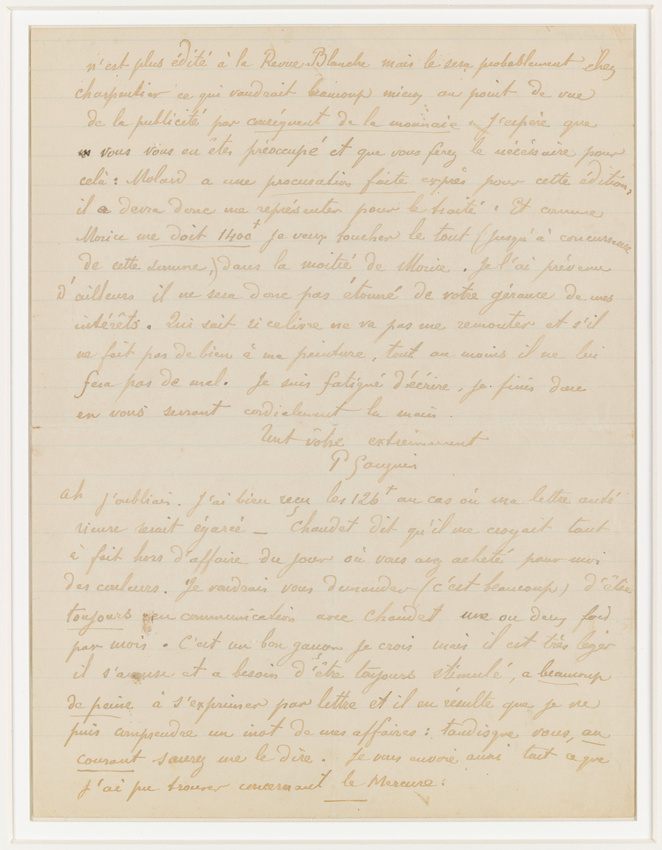 n'est plus édité à la Revue Blanche mais le sera probablement chez
charpentier ce qui vaudrait beaucoup mieux au point de vue
de la publicité par conséquent de la monnaie. J'espère que
vous vous en êtes préoccupé et que vous ferez le nécessaire pour
celà : Molard a une procuration faite exprès pour cette édition,
il devra donc me représenter pour le traité. Et comme
Morice me doit 1400f je veux toucher le tout (jusqu'à concurrence
de cette somme,) dans la moitié de Morice. Je l'ai prévenu
D'ailleurs il ne sera donc pas étonné de votre gérance de mes
intérêts. Qui sait si ce livre ne va pas me remonter et s'il
ne fait pas de bien à ma peinture, tout au moins il ne lui
fera pas de mal. Je suis fatigué d'écrire, je finis donc
en vous serrant cordialement la main.
Tout vôtre extrêmement
P Gauguin
Ah j'oubliais. J'ai bien reçu les 126f au cas où ma lettre anté
rieure serait égarée — Chaudet dit qu'il me croyait tout
à fait hors d'affaire du jour où vous avez acheté pour moi
des couleurs. Je voudrais vous demander (c'est beaucoup) d'être
toujours en communication avec Chaudet une ou deux fois
par mois. C'est un bon garçon je crois mais il est très léger
il s'amuse et a besoin d'être toujours stimulé, a beaucoup
de peine à s'exprimer par lettre et il en résulte que je ne
puis comprendre un mot de mes affaires : tandisque vous, au
courant saurez me le dire. Je vous envoie aussi tout ce que
j'ai pu trouver concernant le Mercure.